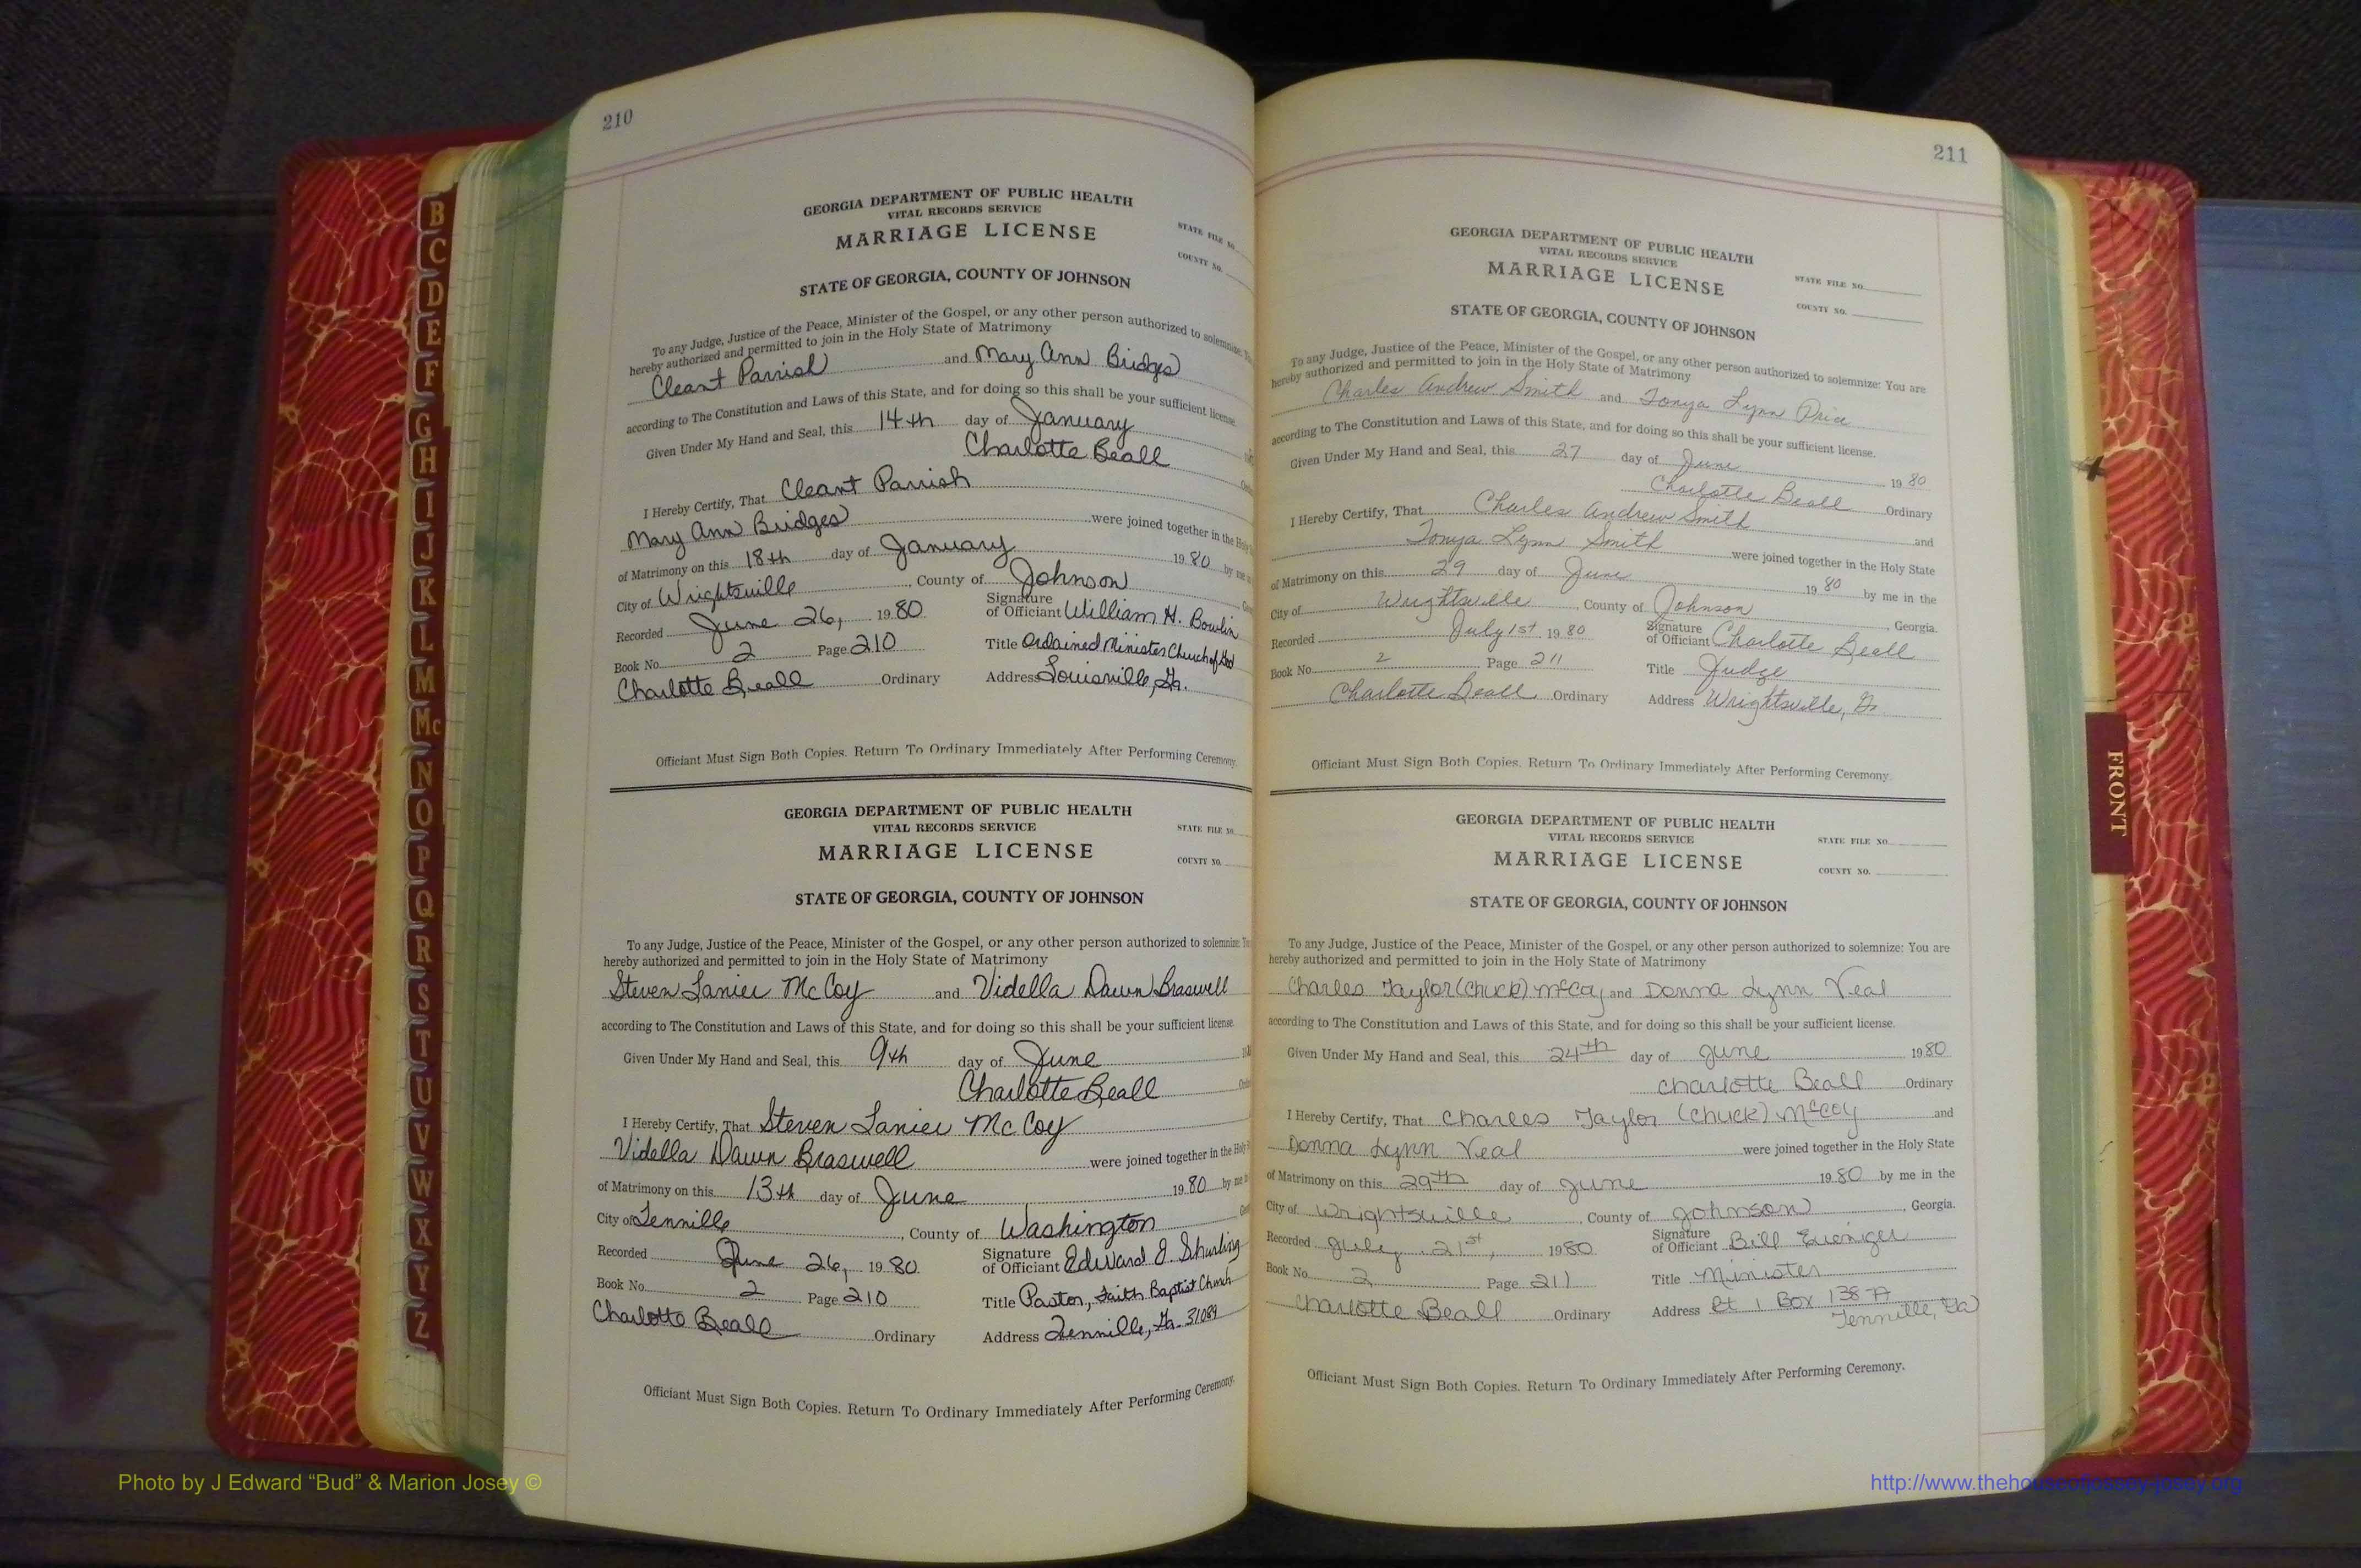 210
GEORGIA DEPARTMENT OF PUBLIC HEALTH
VITAL RECORDS SERVICE
MARRIAGE LICENSE
STATE FILE NO.
COUNTY NO.
STATE OF GEORGIA, COUNTY OF JOHNSON
To any Judge, Justice of the Peace, Minister of the Gospel, or any other person authorized to solemnize:
hereby authorized and permitted to join in the Holy State of Matrimony
Cleant Parrish and Mary Ann Bridges
according to The Constitution and Laws of this State, and for doing so this shall be your sufficient license.
Given Under My Hand and Seal, this 14th day of January
Charlotte Beall
I Hereby Certify, That Cleant Parrish
Mary Ann Bridges were joined together in the Holy
of Matrimony on this 18th day of January 1980 by me
City of Wrightsville, County of Johnson
Recorded June 26, 1980 Signature of Officiant William H. Bowlin
Book No. 2 Page 210 Title Ordained Minister Church of God
Charlotte Beall Ordinary Address Louisville, Ga.
Officiant Must Sign Both Copies. Return To Ordinary Immediately After Performing Ceremony.
GEORGIA DEPARTMENT OF PUBLIC HEALTH
VITAL RECORDS SERVICE
MARRIAGE LICENSE
STATE FILE NO.
COUNTY NO.
STATE OF GEORGIA, COUNTY OF JOHNSON
To any Judge, Justice of the Peace, Minister of the Gospel, or any other person authorized to solemnize:
hereby authorized and permitted to join in the Holy State of Matrimony
Steven Lanier McCoy and Vidella Dawn Braswell
according to The Constitution and Laws of this State, and for doing so this shall be your sufficient license.
Given Under My Hand and Seal, this 9th day of June
Charlotte Beall
I Hereby Certify, That Steven Lanier McCoy
Vidella Dawn Braswell were joined together in the Holy
of Matrimony on this 13th day of June 1980 by me
City of Tennille, County of Washington
Recorded June 26, 1980 Signature of Officiant Edward J. Shurling
Book No. 2 Page 210 Title Pastor, Faith Baptist Church
Charlotte Beall Ordinary Address Tennille, Ga. 31089
Officiant Must Sign Both Copies. Return To Ordinary Immediately After Performing Ceremony.
211
GEORGIA DEPARTMENT OF PUBLIC HEALTH
VITAL RECORDS SERVICE
MARRIAGE LICENSE
STATE FILE NO.
COUNTY NO.
STATE OF GEORGIA, COUNTY OF JOHNSON
To any Judge, Justice of the Peace, Minister of the Gospel, or any other person authorized to solemnize: You are
hereby authorized and permitted to join in the Holy State of Matrimony
Charles Andrew Smith and Tonya Lynn Price
according to The Constitution and Laws of this State, and for doing so this shall be your sufficient license.
Given Under My Hand and Seal, this 27 day of June 1980
Charlotte Beall Ordinary
I Hereby Certify, That Charles Andrew Smith and
Tonya Lynn Smith were joined together in the Holy State
of Matrimony on this 29 day of June 1980 by me in the
City of Wrightsville, County of Johnson, Georgia.
Recorded July 1st 1980 Signature of Officiant Charlotte Beall
Book No. 2 Page 211 Title Judge
Charlotte Beall Ordinary Address Wrightsville, Ga
Officiant Must Sign Both Copies. Return To Ordinary Immediately After Performing Ceremony.
GEORGIA DEPARTMENT OF PUBLIC HEALTH
VITAL RECORDS SERVICE
MARRIAGE LICENSE
STATE FILE NO.
COUNTY NO.
STATE OF GEORGIA, COUNTY OF JOHNSON
To any Judge, Justice of the Peace, Minister of the Gospel, or any other person authorized to solemnize: You are
hereby authorized and permitted to join in the Holy State of Matrimony
Charles Taylor (Chuck) McCoy and Donna Lynn Veal
according to The Constitution and Laws of this State, and for doing so this shall be your sufficient license.
Given Under My Hand and Seal, this 24th day of June 1980
Charlotte Beall Ordinary
I Hereby Certify, That Charles Taylor (Chuck) McCoy and
Donna Lynn Veal were joined together in the Holy State
of Matrimony on this 29th day of June 1980 by me in the
City of Wrightsville, County of Johnson, Georgia.
Recorded July 21st, 1980 Signature of Officiant Bill
Book No. 2 Page 211 Title Minister
Charlotte Beall Ordinary Address Rt 1 Box 138 A
Tennille, Ga
Officiant Must Sign Both Copies. Return To Ordinary Immediately After Performing Ceremony.
B
C
D
E
F
G
H
I
J
K
L
M
Mc
N
O
P
Q
R
S
T
U
V
W
X
Y
Z
FRONT
Photo by J Edward “Bud” & Marion Josey ©
http://www.thehouseofjossey-josey.org